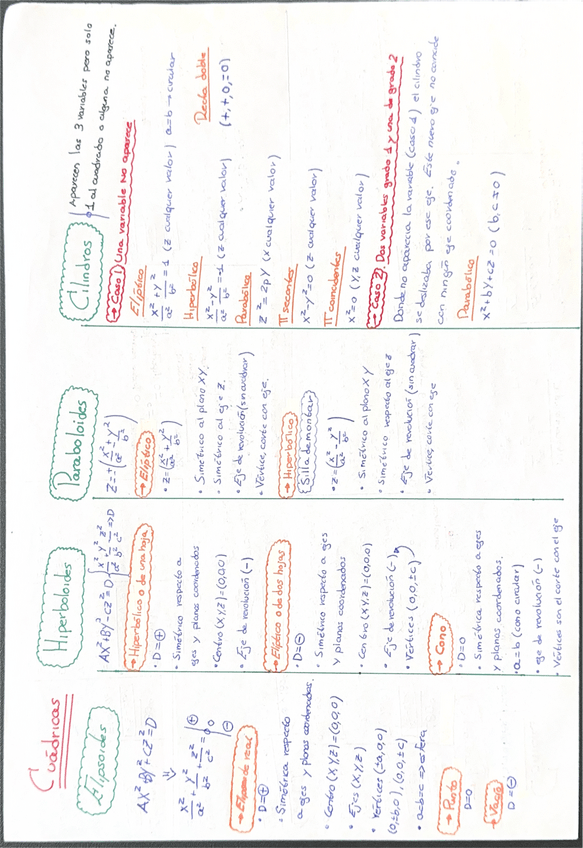 Cuádricas
Elipsoides
AX²+BY²+CZ²=D
⇓
x²/a² + y²/b² + z²/c² = ⊕ 0 ⊖
→ Elipse
• D=⊕
• Simétrica respecto
a ejes y planos coordenados.
• Centro (X,Y,Z)=(0,0,0)
• Ejes (X,Y,Z)
• Vértices (±a,0,0)
(0,±b,0), (0,0,±c)
• a=b=c ⇒ esfera
→ Punto
D=0
→ Vacío
D=⊖
Hiperboloides
AX²+BY²-CZ²=D
x²/a² + y²/b² - z²/c² = D
→ Hiperbólico o de una hoja
• D=⊕
• Simétrico respecto a
ejes y planos coordenados
• Centro (X,Y,Z)=(0,0,0)
• Eje de revolución (-)
→ Elíptico o de dos hojas
• D=⊖
• Simétrico respecto a ejes
y planos coordenados
• Centro (X,Y,Z)=(0,0,0)
• Eje de revolución (-)
• Vértices (0,0,±c)
→ Cono
• D=0
• Simétrico respecto a ejes
y planos coordenados.
• a=b (cono circular)
• eje de revolución (-)
• Vértices son el corte con el eje
Paraboloides
Z=±(x²/a² ± y²/b²)
→ Elíptico
• Z=(x²/a² + y²/b²)
• Simétrico al plano XY.
• Simétrico al eje Z.
• Eje de revolución (sin cuadrar)
• Vértice, corte con eje.
→ Hiperbólico
(Silla de montar)
• Z=(x²/a² - y²/b²)
• Simétrico al plano XY
• Simétrico respecto al eje Z
• Eje de revolución (sin cuadrar)
• Vértice, corte con eje
Cilindros
Aparecen las 3 variables pero solo
1 al cuadrado o alguna no aparece.
→ Caso 1) Una variable No aparece
Elíptico
x²/a² + y²/b² = 1 (z cualquier valor) a=b → circular
Hiperbólico
x²/a² - y²/b² = 1 (z cualquier valor)
Recta doble
(+,+,0,=0)
Parabólico
Z²=2pY (X cualquier valor)
π secantes
x²-y²=0 (z cualquier valor)
π coincidentes
x²=0 (y,z cualquier valor)
→ Caso 2) Dos variables grado 1 y una de grado 2
Donde no aparecía la variable (caso 1) el cilindro
se deslizaba por ese eje. Este nuevo eje no coincide
con ningún eje coordenado.
Parabólico
x²+by+cz=0 (b,c≠0)